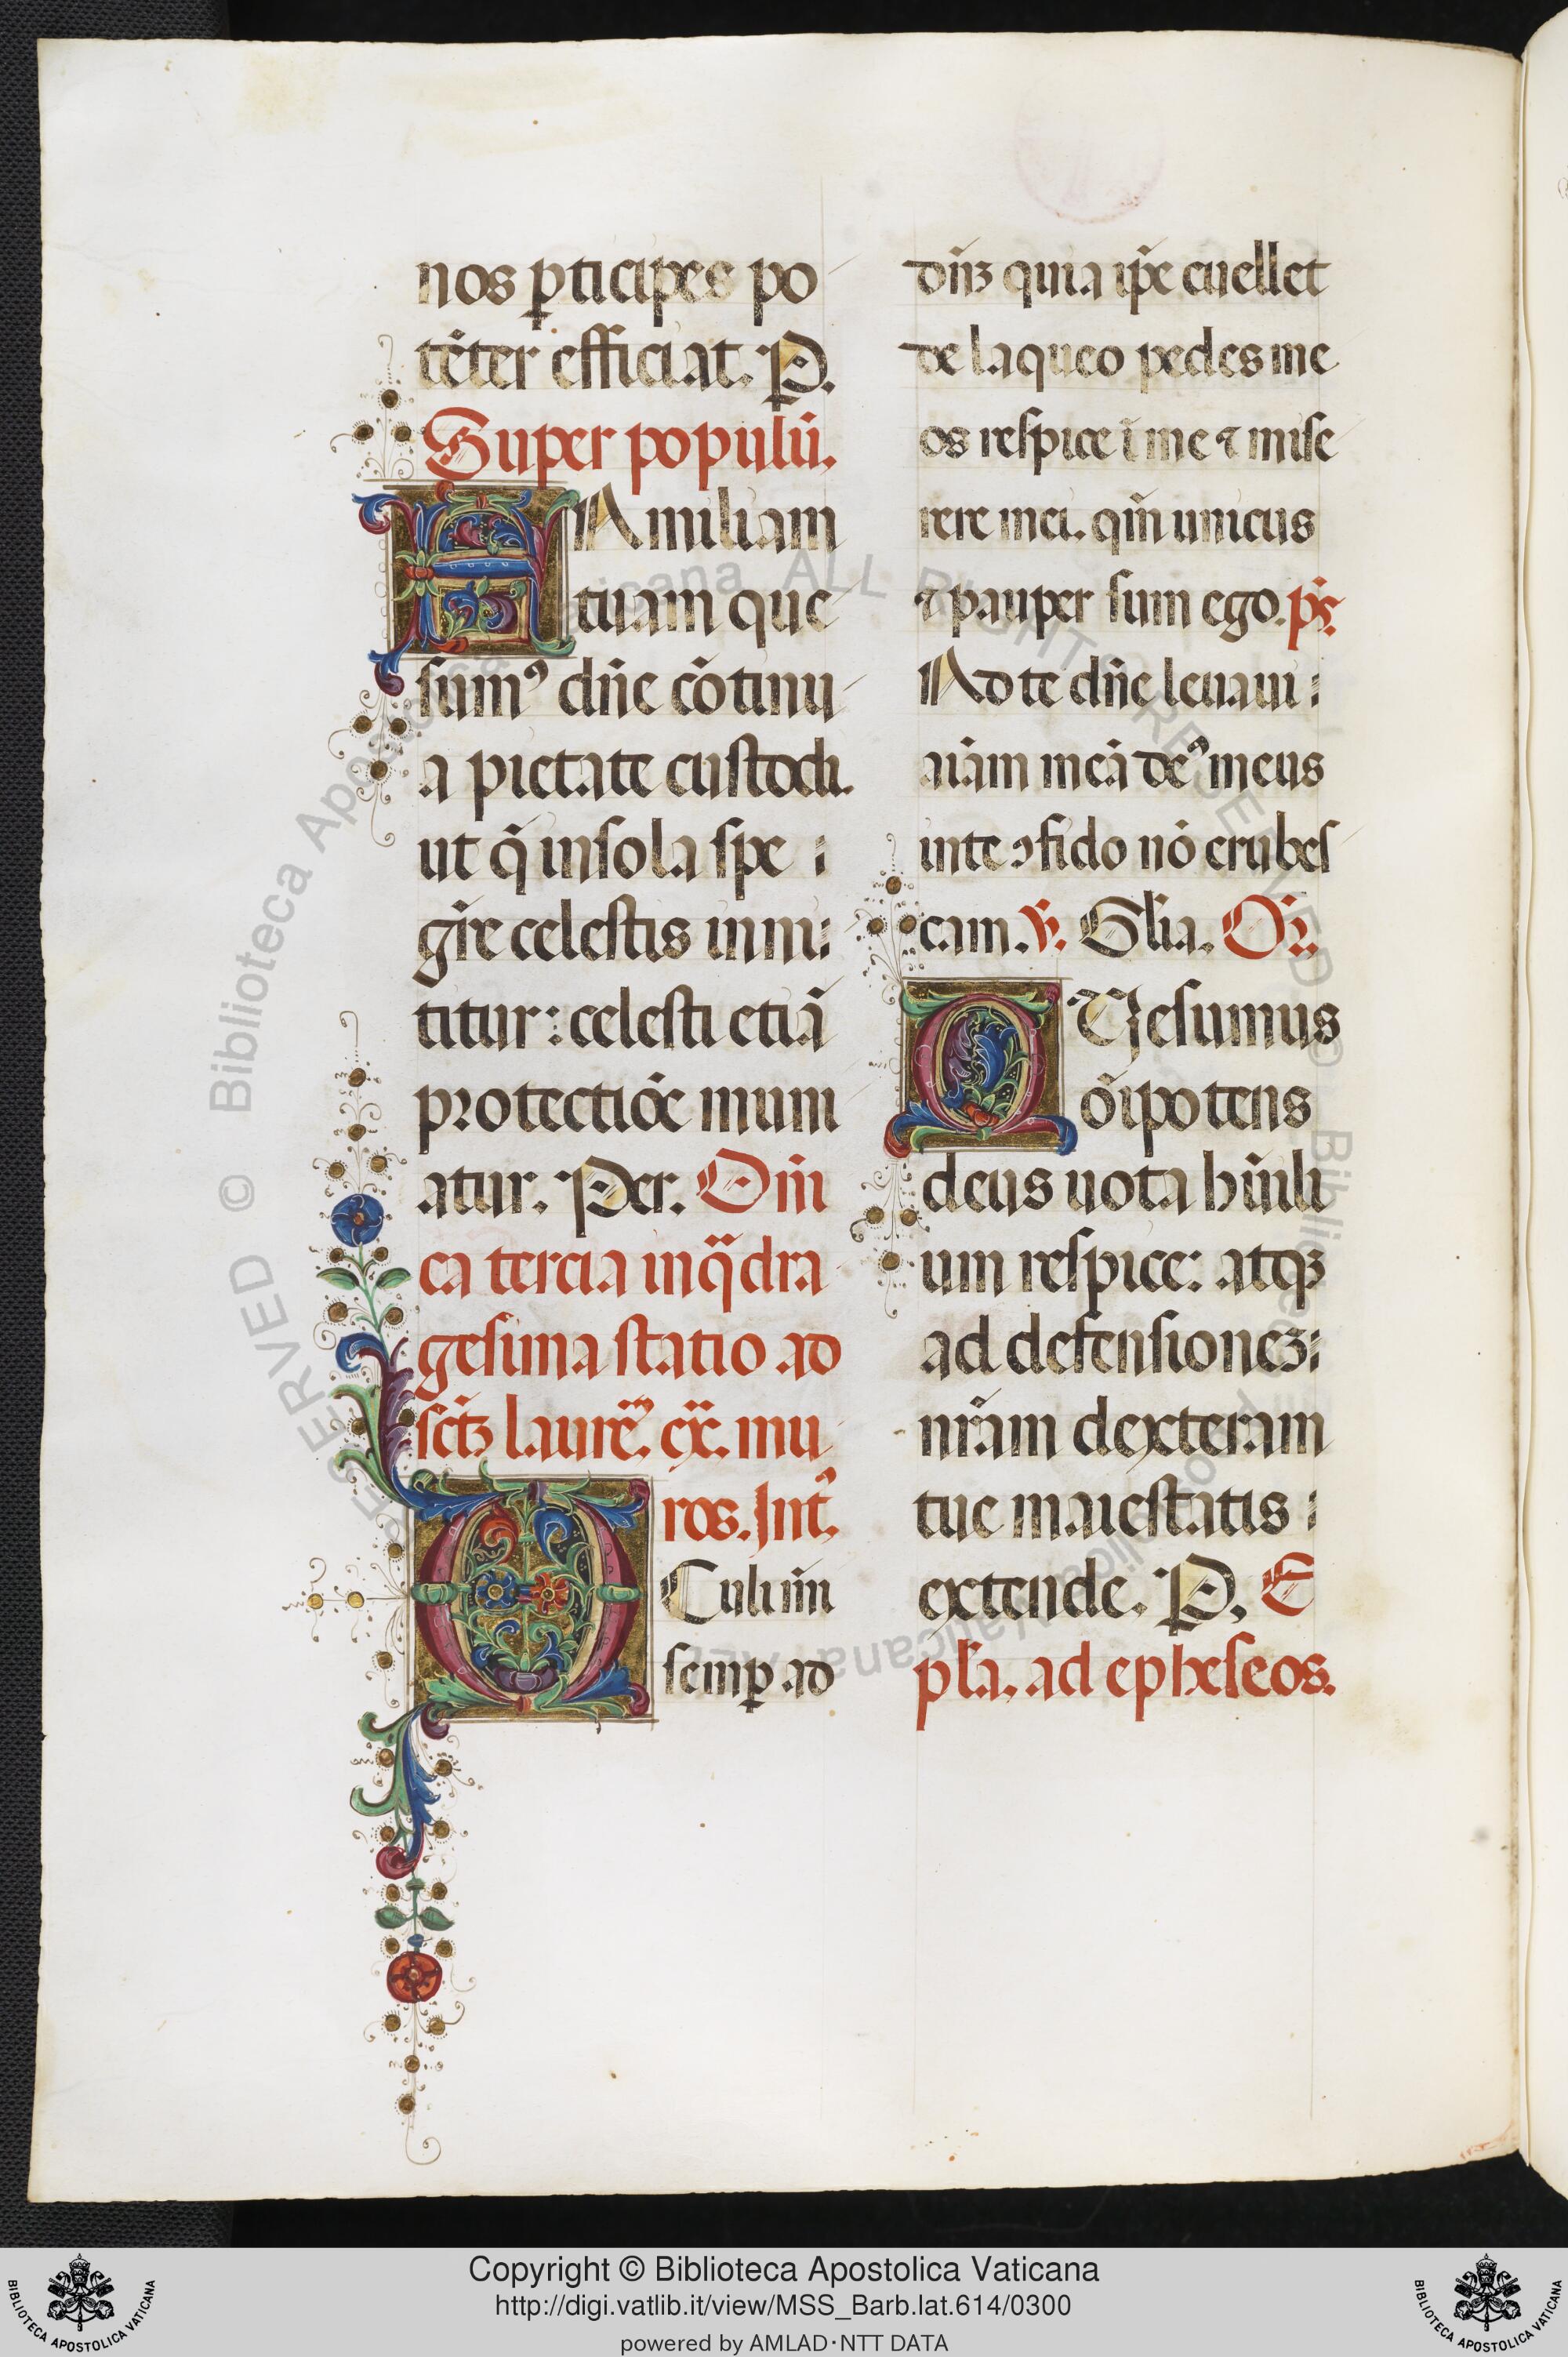 nos ꝑticipes po
tēter efficiat. P.
Super populū.
FAmiliam
tuam que
sumꝰ dñe cōtinu
a pietate custodi.
ut q̄ in sola spe
gr̄e celestis inni
titur: celesti etiā
protectiōe muni
atur. Per. Dñi
ca tercia in qͣdra
gesima statio ad
sct̄ꝫ laurē. ex̄. mu
ros. Int̄.
OCuli mī
semꝑ ad
dñꝫ quia ip̄e euellet
de laqueo pedes me
os respice ī me ⁊ mise
rere mei. qm̄ unicus
⁊ pauper sum ego. p̄s.
Ad te dñe leuaui
aiam meā deꝰ meus
in te ꝯfido nō erubes
cam. ꝟ. Glīa. Or̄.
QUesumus
oīpotens
deus uota hūili
um respice: atqꝫ
ad defensioneꝫ
nrām dexteram
tue maiestatis
extende. P. E
pl̄a. ad epheseos.
© Biblioteca Apostolica Vaticana ALL RIGHTS RESERVED
Copyright © Biblioteca Apostolica Vaticana
http://digi.vatlib.it/view/MSS_Barb.lat.614/0300
powered by AMLAD·NTT DATA
BIBLIOTECA APOSTOLICA VATICANA
BIBLIOTECA APOSTOLICA VATICANA